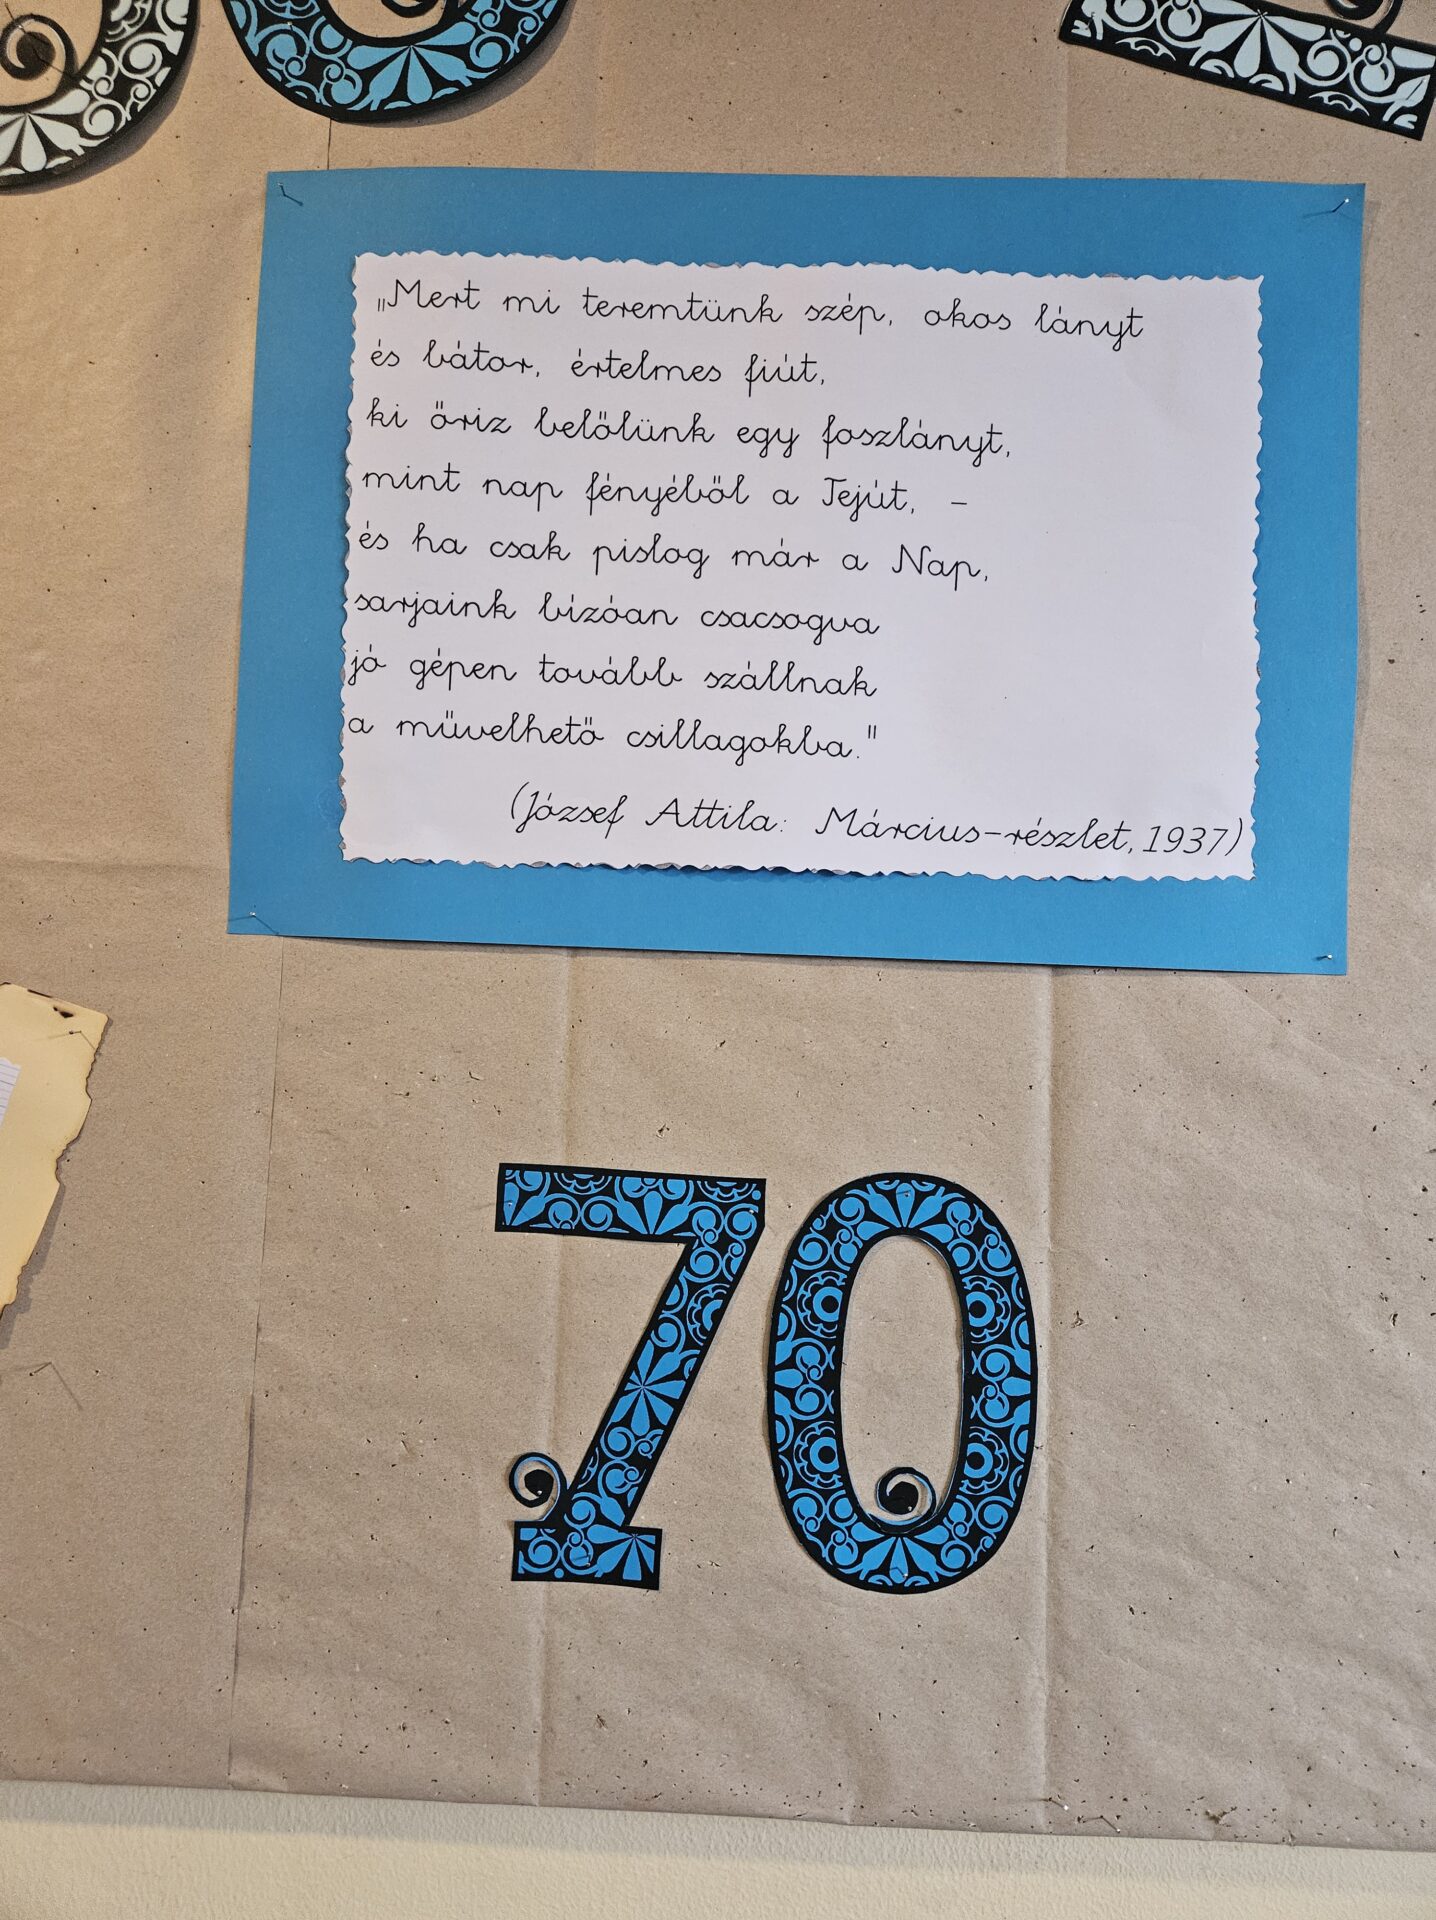 „Mert mi teremtünk szép, okos lányt
és bátor, értelmes fiút,
ki őriz belőlünk egy foszlányt,
mint nap fényéből a Tejút, –
és ha csak pislog már a Nap,
sarjaink bízóan csacsogva
jó gépen tovább szállnak
a művelhető csillagokba."
(József Attila: Március-részlet, 1937)
70